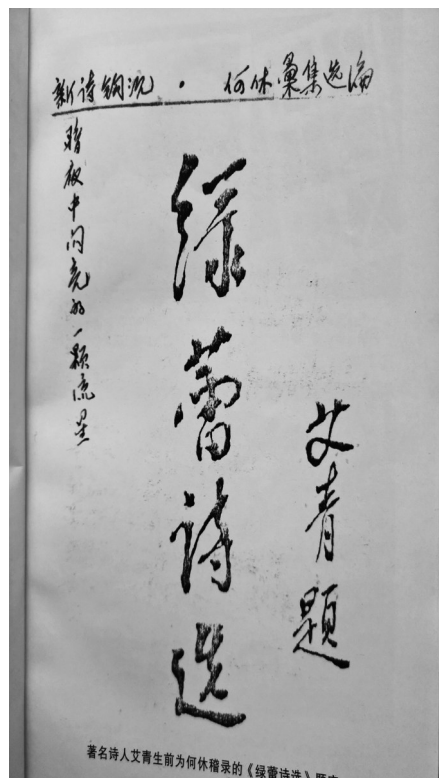 新诗钩沉 · 何休汇集选编
暗夜中闪亮的一颗流星
绿蕾诗选
艾青题
著名诗人艾青生前为何休稽录的《绿蕾诗选》题